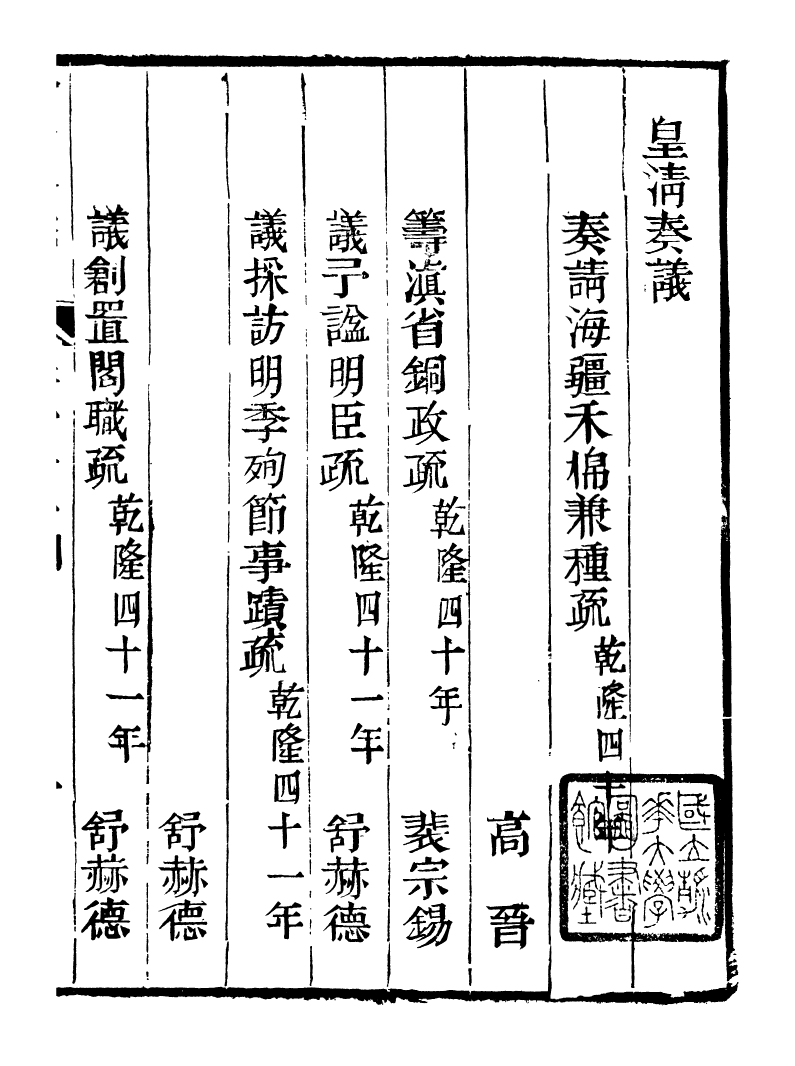 皇淸奏議
奏請海疆禾棉兼種疏 乾隆四十年
高晉
籌滇省銅政疏 乾隆四十年 裴宗錫
議予諡明臣疏 乾隆四十一年 舒赫德
議採訪明季殉節事蹟疏 乾隆四十一年
舒赫德
議創置閣職疏 乾隆四十一年 舒赫德
國立清
華大學
圖書
館藏